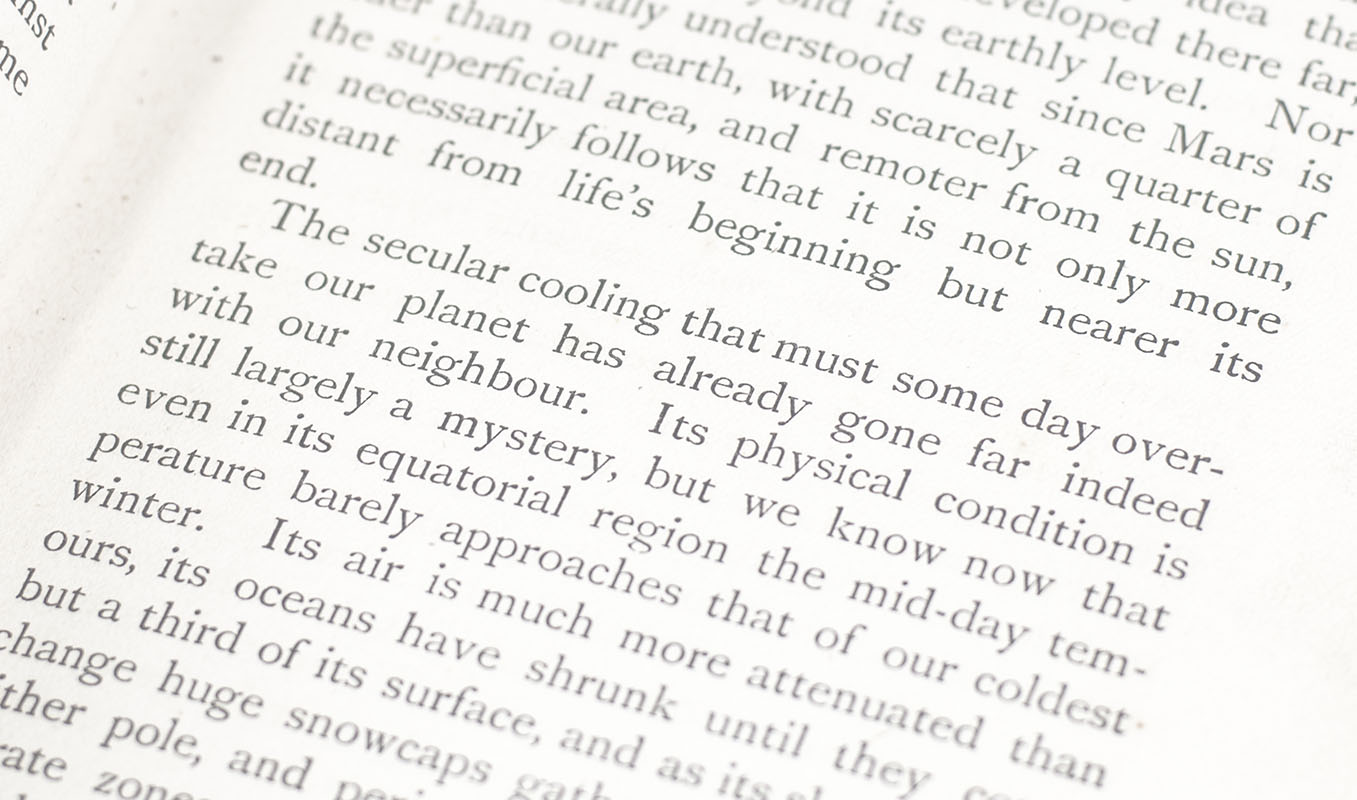 nst
me
idea
developed there far,
its earthly level. Nor
understood that since Mars is
than our earth, with scarcely a quarter of
the superficial area, and remoter from the sun,
it necessarily follows that it is not only more
distant from life's beginning but nearer its
end.
The secular cooling that must some day over-
take our planet has already gone far indeed
with our neighbour. Its physical condition is
still largely a mystery, but we know now that
even in its equatorial region the mid-day tem-
perature barely approaches that of our coldest
winter. Its air is much more attenuated than
ours, its oceans have shrunk until they
but a third of its surface, and as its
change huge snowcaps
ther pole, and
rate zones